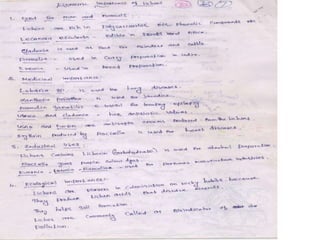 Economic Importance of lichens
1. Used for man and animals:
Lichens are rich in Polysaccharides and Phenolic compounds etc.
Lecanora esculenta - edible in
Cladonia is used as food for Reindeer and cattle
Parmelia - used in Curry preparation in india.
Evernia - used in bread preparation.
2. Medicinal importance:
Lobaria sp. is used for lung diseases
Xanthoria parietina is used for jaundice
Parmelia saxatilis is used for treating epilepsy
Usnea and Cladonia - have antibiotic values.
Usno and Evosin are antiseptic creams produced from the lichens
Erythrin produced by Roccella is used for heart diseases.
3. Industrial uses:
Lichens contains lichenin (carbohydrate) is used for alcohol preparation
Roccella gives purple colour dyes
Evernia, - Parmelia - used for perfumes manufacture industries.
4. Ecological importance:
Lichens are pioneers in colonisation on rocky habitat because
They produce lichen acids that dissolve minerals.
They helps soil formation
Lichens are commonly called as Bioindicator of air
Pollution.